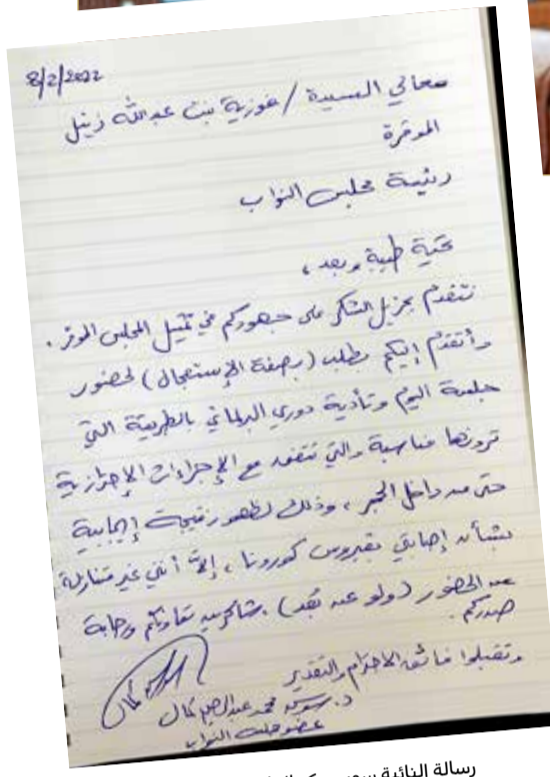 8/2/2022
معالي السيدة / فوزية بنت عبدالله زينل
الموقرة
رئيسة مجلس النواب
تحية طيبة وبعد ،
نتقدم بجزيل الشكر على جهودكم في تمثيل المجلس الموقر .
وأتقدم إليكم بطلب (بصفة الإستعجال) لحضور
جلسة اليوم وتأدية دوري البرلماني بالطريقة التي
ترونها مناسبة والتي تتفق مع الإجراءات الإحترازية
حتى من داخل الحجر ، وذلك لظهور نتيجة إيجابية
بشأن إصابتي بفيروس كورونا ، إلا أنني غير متنازلة
عن الحضور (ولو عن بعد) . شاكرين تعاونكم ورحابة
صدركم .
وتقبلوا فائق الاحترام والتقدير
د. سوسن محمد عبدالرحيم كمال
عضو مجلس النواب
رسالة النائبة سوسن